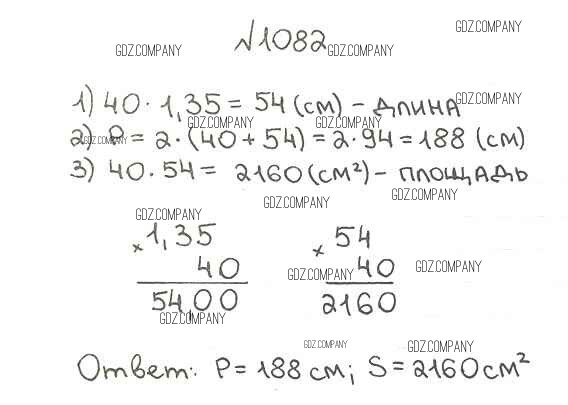 №1082
GDZ.COMPANY GDZ.COMPANY GDZ.COMPANY
1) 40 · 1,35 = 54 (см) - ДЛИНА
GDZ.COMPANY
GDZ.COMPANY GDZ.COMPANY GDZ.COMPANY
2) P = 2 · (40 + 54) = 2 · 94 = 188 (см)
3) 40 · 54 = 2160 (см²) - ПЛОЩАДЬ
GDZ.COMPANY GDZ.COMPANY GDZ.COMPANY
× 1,35 × 54
40 40
GDZ.COMPANY GDZ.COMPANY
54,00 2160
GDZ.COMPANY GDZ.COMPANY GDZ.COMPANY
Ответ: P = 188 см; S = 2160 см²